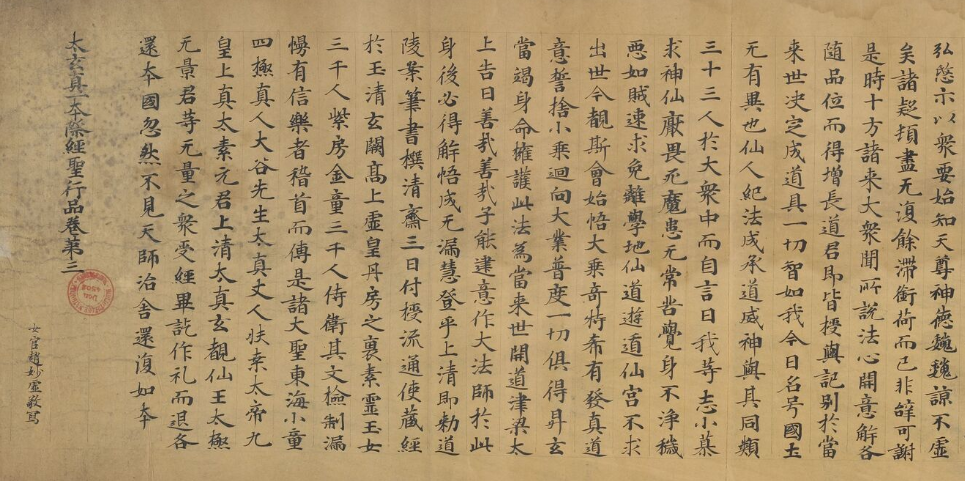 弘慜示以衆要始知天尊神德巍巍諒不虛
矣諸疑頓盡无復餘滯銜荷而已非辞可謝
是時十方諸来大衆聞所說法心開意解各
随品位而得增長道君即皆授與記别於當
来世决定成道具一切智如我今日名号國土
无有異也仙人紀法成承道威神與其同類
三十三人於大衆中而自言曰我等志小慕
求神仙厭畏死魔患无常苦覺身不淨穢
惡如賊速求免離學地仙道遊道仙宫不求
出世今覩斯會始悟大乗奇特希有發真道
意誓捨小乗迴向大業普度一切俱得昇玄
當竭身命擁護此法為當来世開道津梁太
上告曰善哉善哉子能建意作大法師於此
身後必得解悟成无漏慧登乎上清即勑道
陵業筆書撰清齋三日付授流通使蔵經
於玉清玄闕高上虛皇丹房之裏素靈玉女
三千人紫房金童三千人侍衛其文檢制漏
慢有信樂者稽首而傳是諸大聖東海小童
四極真人大谷先生太真丈人扶桒太帝九
皇上真太素元君上清太真玄覩仙王太極
无景君等无量之衆受經畢訖作礼而退各
還本國忽然不見天師治舍還復如本
太玄真一本際經聖行品卷第三
女官趙妙虛敬寫